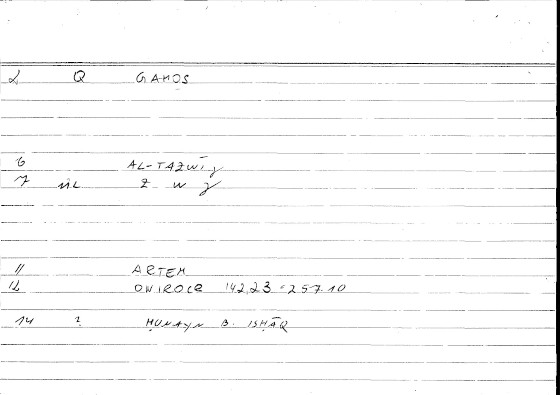 2 Q GAMOS
6 AL-TAZWĪǧ
7 NL Z W ǧ
11 ARTEM
12 ONIROCR 142,23 = 257.10
14 2 ḤUNAYN B. ISḤĀQ